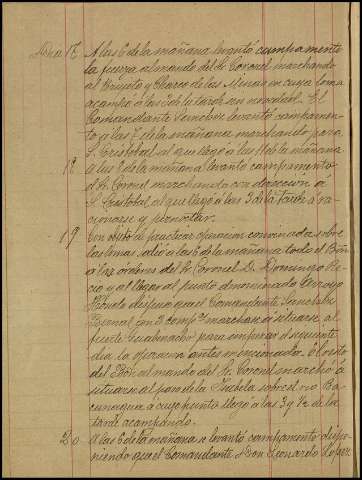 Dia 17 A las 6 de la mañana levantó campamento
la fuerza al mando del Sr. Coronel marchando
al Brujito y Charco de las Minas en cuya loma
acampó á las 3 de la tarde sin novedad. El
Comandante Sanchez levantó campamen-
to á las 7 de la mañana marchando para
S. Cristobal al que llegó á las 11 de la mañana
18 A las 8 de la mañana levantó campamento
el Sr. Coronel marchando con dirección á
S. Cristobal al que llegó á las 3 de la tarde á ra-
cionarse y pernoctar.
19 Con objeto de practicar operacion convinada sobre
las lomas, salió á las 6 de la mañana todo el Bon
á las órdenes del Sr. Coronel D. Domingo Re-
cio y al llegar al punto denominado Arroyo
dispuso que el Comandante Sanchez
Bernal con 3 compas marchara á situarse al
fuerte para empezar el siguiente
dia la operacion antes mencionada. El resto
del Bon al mando del Sr. Coronel marchó á
situarse al paso de la sobre el rio Ba-
cunagua á cuyo punto llegó á las 3 y 1/2 de la
tarde acampando.
20 A las 6 de la mañana se levantó campamento dispo-
niendo que el Comandante Don Leonardo Lopez